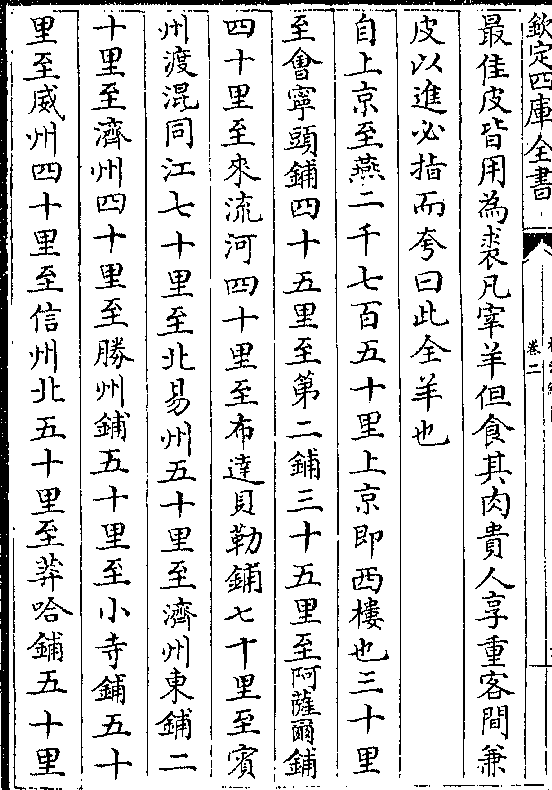 欽定四庫全書
卷二
最佳皮皆用為裘凡宰羊但食其肉貴人享重客間兼
皮以進必指而夸曰此全羊也
自上京至燕二千七百五十里上京即西樓也三十里
至會寧頭鋪四十五里至第二鋪三十五里至阿薩爾鋪
四十里至來流河四十里至布達貝勒鋪七十里至賓
州渡混同江七十里至北易州五十里至濟州東鋪二
十里至濟州四十里至勝州鋪五十里至小寺鋪五十
里至威州四十里至信州北五十里至莽哈鋪五十里